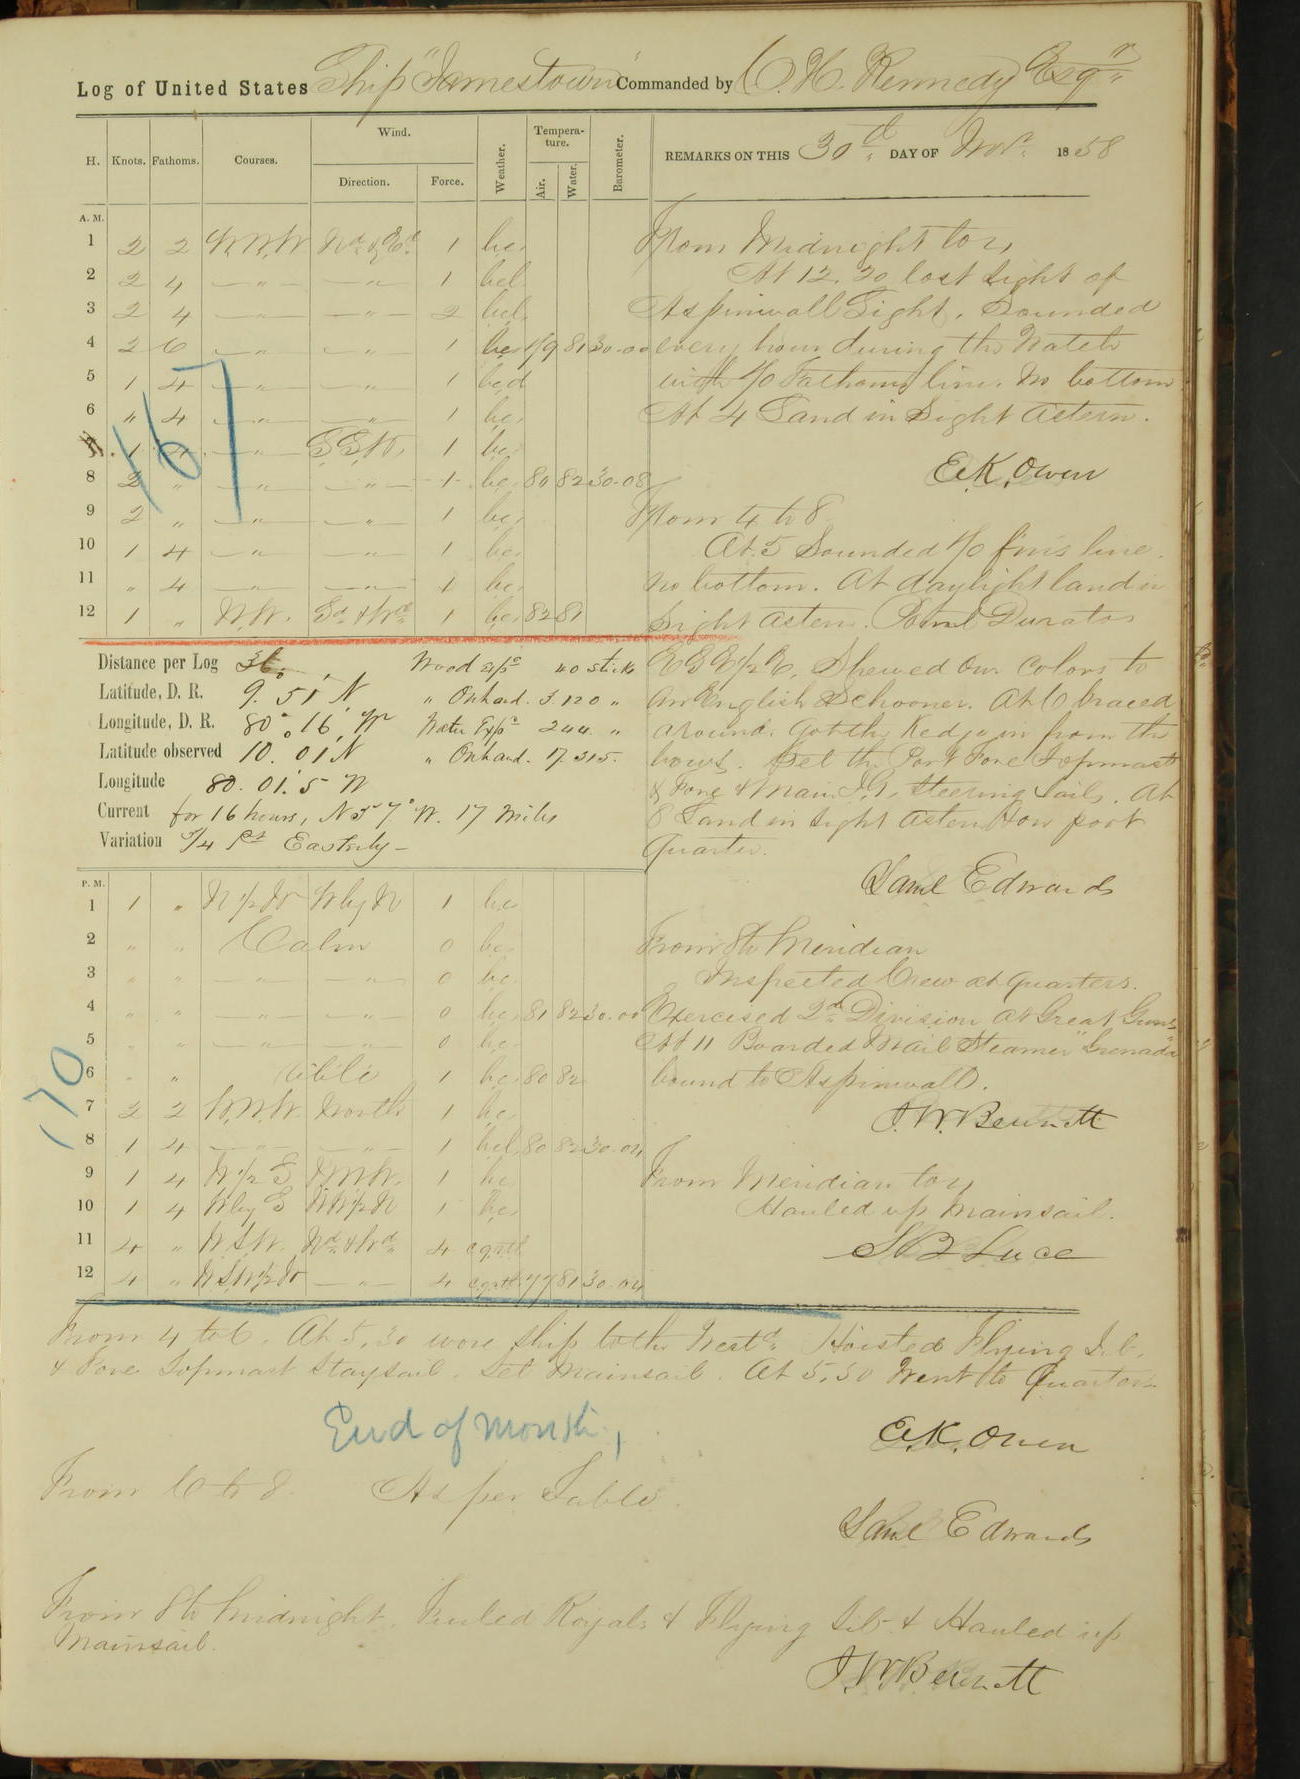 Log of United States Ship "Jamestown" Commanded by C. H. Kennedy Esqr
H. Knots. Fathoms. Courses. Wind. Direction. Force. Weather. Temperature. Air. Water. Barometer. REMARKS ON THIS 30th DAY OF Novr 1858
A. M.
1 2 2 W.N.W Nd & Ed 1 bc
2 2 4 — " — — " — 1 bcl
3 2 4 — " — — " — 2 bcl
4 2 6 — " — — " — 1 bc 79 81 30.00
5 1 4 — " — — " — 1 bcd
6 " 4 — " — — " — 1 bc
7 1 4 — " — S.S.W. 1 bc
8 2 " — " — — " — 1 bc 80 82 30.08
9 2 " — " — — " — 1 bc
10 1 4 — " — — " — 1 bc
11 " 4 — " — — " — 1 bc
12 1 " N.W. Sd & Wd 1 bc 82 81
167
From Midnight to 4
At 12.20 lost sight of
Aspinwall Light. Sounded
every hour during the Watch
with 70 Fathoms line. No bottom
At 4 Land in Sight Astern.
E.K. Owen
From 4 to 8
At 5 Sounded 70 fms line.
No bottom. At daylight land in
Sight astern. Point
E S E 1/2 E. Shewed our Colors to
an English Schooner. At 6 braced
around. Got the Kedge in from the
bows. Set the Port Fore Topmast
& Fore & Main T.G. Steering Sails. At
8 Land in sight astern & on port
Quarter.
Saml Edwards
Distance per Log 36. Wood Expd 40 sticks
Latitude, D. R. 9. 51 N " On hand. 3.120 "
Longitude, D. R. 80° 16 W Water Expd 244 "
Latitude observed 10. 01 N " On hand. 17.315.
Longitude 80. 01'. 5 W
Current for 16 hours, N 57° W. 17 Miles
Variation 3/4 Pt Easterly
P. M.
1 1 " N 1/2 W W by N 1 bc
2 " " Calm 0 bc
3 " " — " — — " — 0 bc
4 " " — " — — " — 0 bc 81 82 30.00
5 " " — " — — " — 0 bc
6 " " 1 bc 80 82
7 2 2 W.N.W. North 1 bc
8 1 4 — " — — " — 1 bcl 80 82 30.04
9 1 4 W 1/2 S N.N.W. 1 bc
10 1 4 W by S N W 1/2 N 1 bc
11 4 " W.S.W. Nd & Wd 4
12 4 " W.S.W 1/2 W — " — 4 77 81 30.04
170
From 8 to Meridian
Inspected Crew at Quarters.
Exercised 2nd Division at Great Guns
At 11 Boarded Mail Steamer "Grenada"
bound to Aspinwall.
J.W. Bennett
From Meridian to 4
Hauled up Mainsail.
S B Luce
From 4 to 6. At 5.30 wore ship to the Westd. Hoisted Flying Jib.
& Fore Topmast Staysail. Set Mainsail. At 5.30 Went to Quarters
E.K. Owen
End of Month
From 6 to 8. As per Table.
Saml Edwards
From 8 to Midnight. Furled Royals & Flying Jib & Hauled up
Mainsail.
J W Bennett